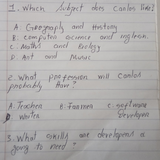 1. Which subject does Canlas like?
A Geography and History
B. Computer science and English
C. Maths and Biology
D. Art and Music
2. What profession will Canlas
probably have?
A. Teacher B. Farmer C. software
D writer developer
3. What skills are developed a
going to need?